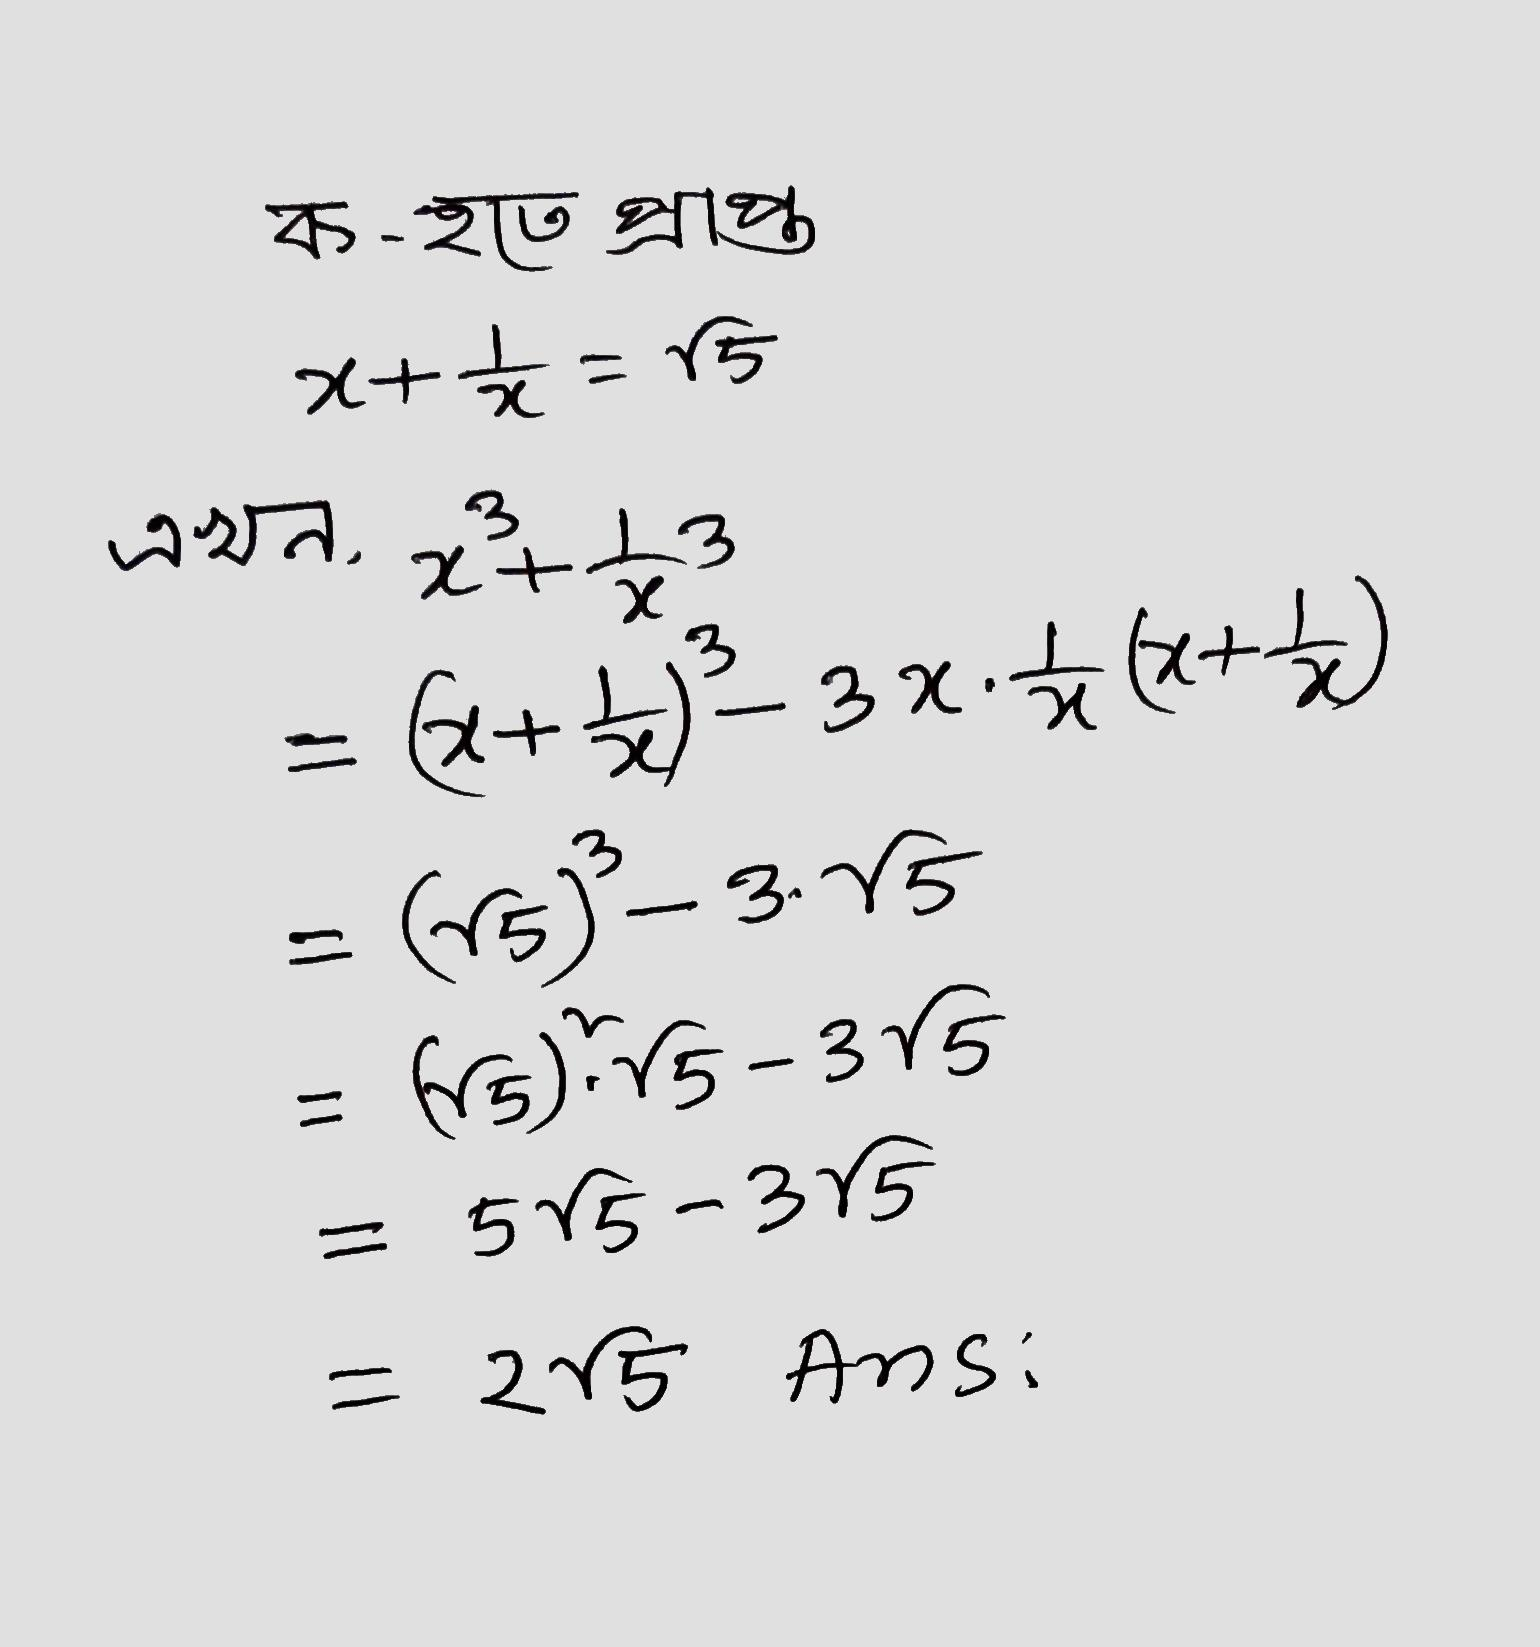 ক-হতে প্রাপ্ত
x + 1/x = √5
এখন, x³ + 1/x³
= (x + 1/x)³ - 3x · 1/x (x + 1/x)
= (√5)³ - 3 · √5
= (√5)² · √5 - 3√5
= 5√5 - 3√5
= 2√5 Ans: